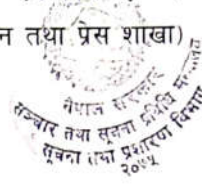 न तथा प्रेस शाखा)
नेपाल सरकार
सञ्चार तथा सूचना प्रविधि मन्त्रालय
सूचना तथा प्रशारण विभाग
२०७५